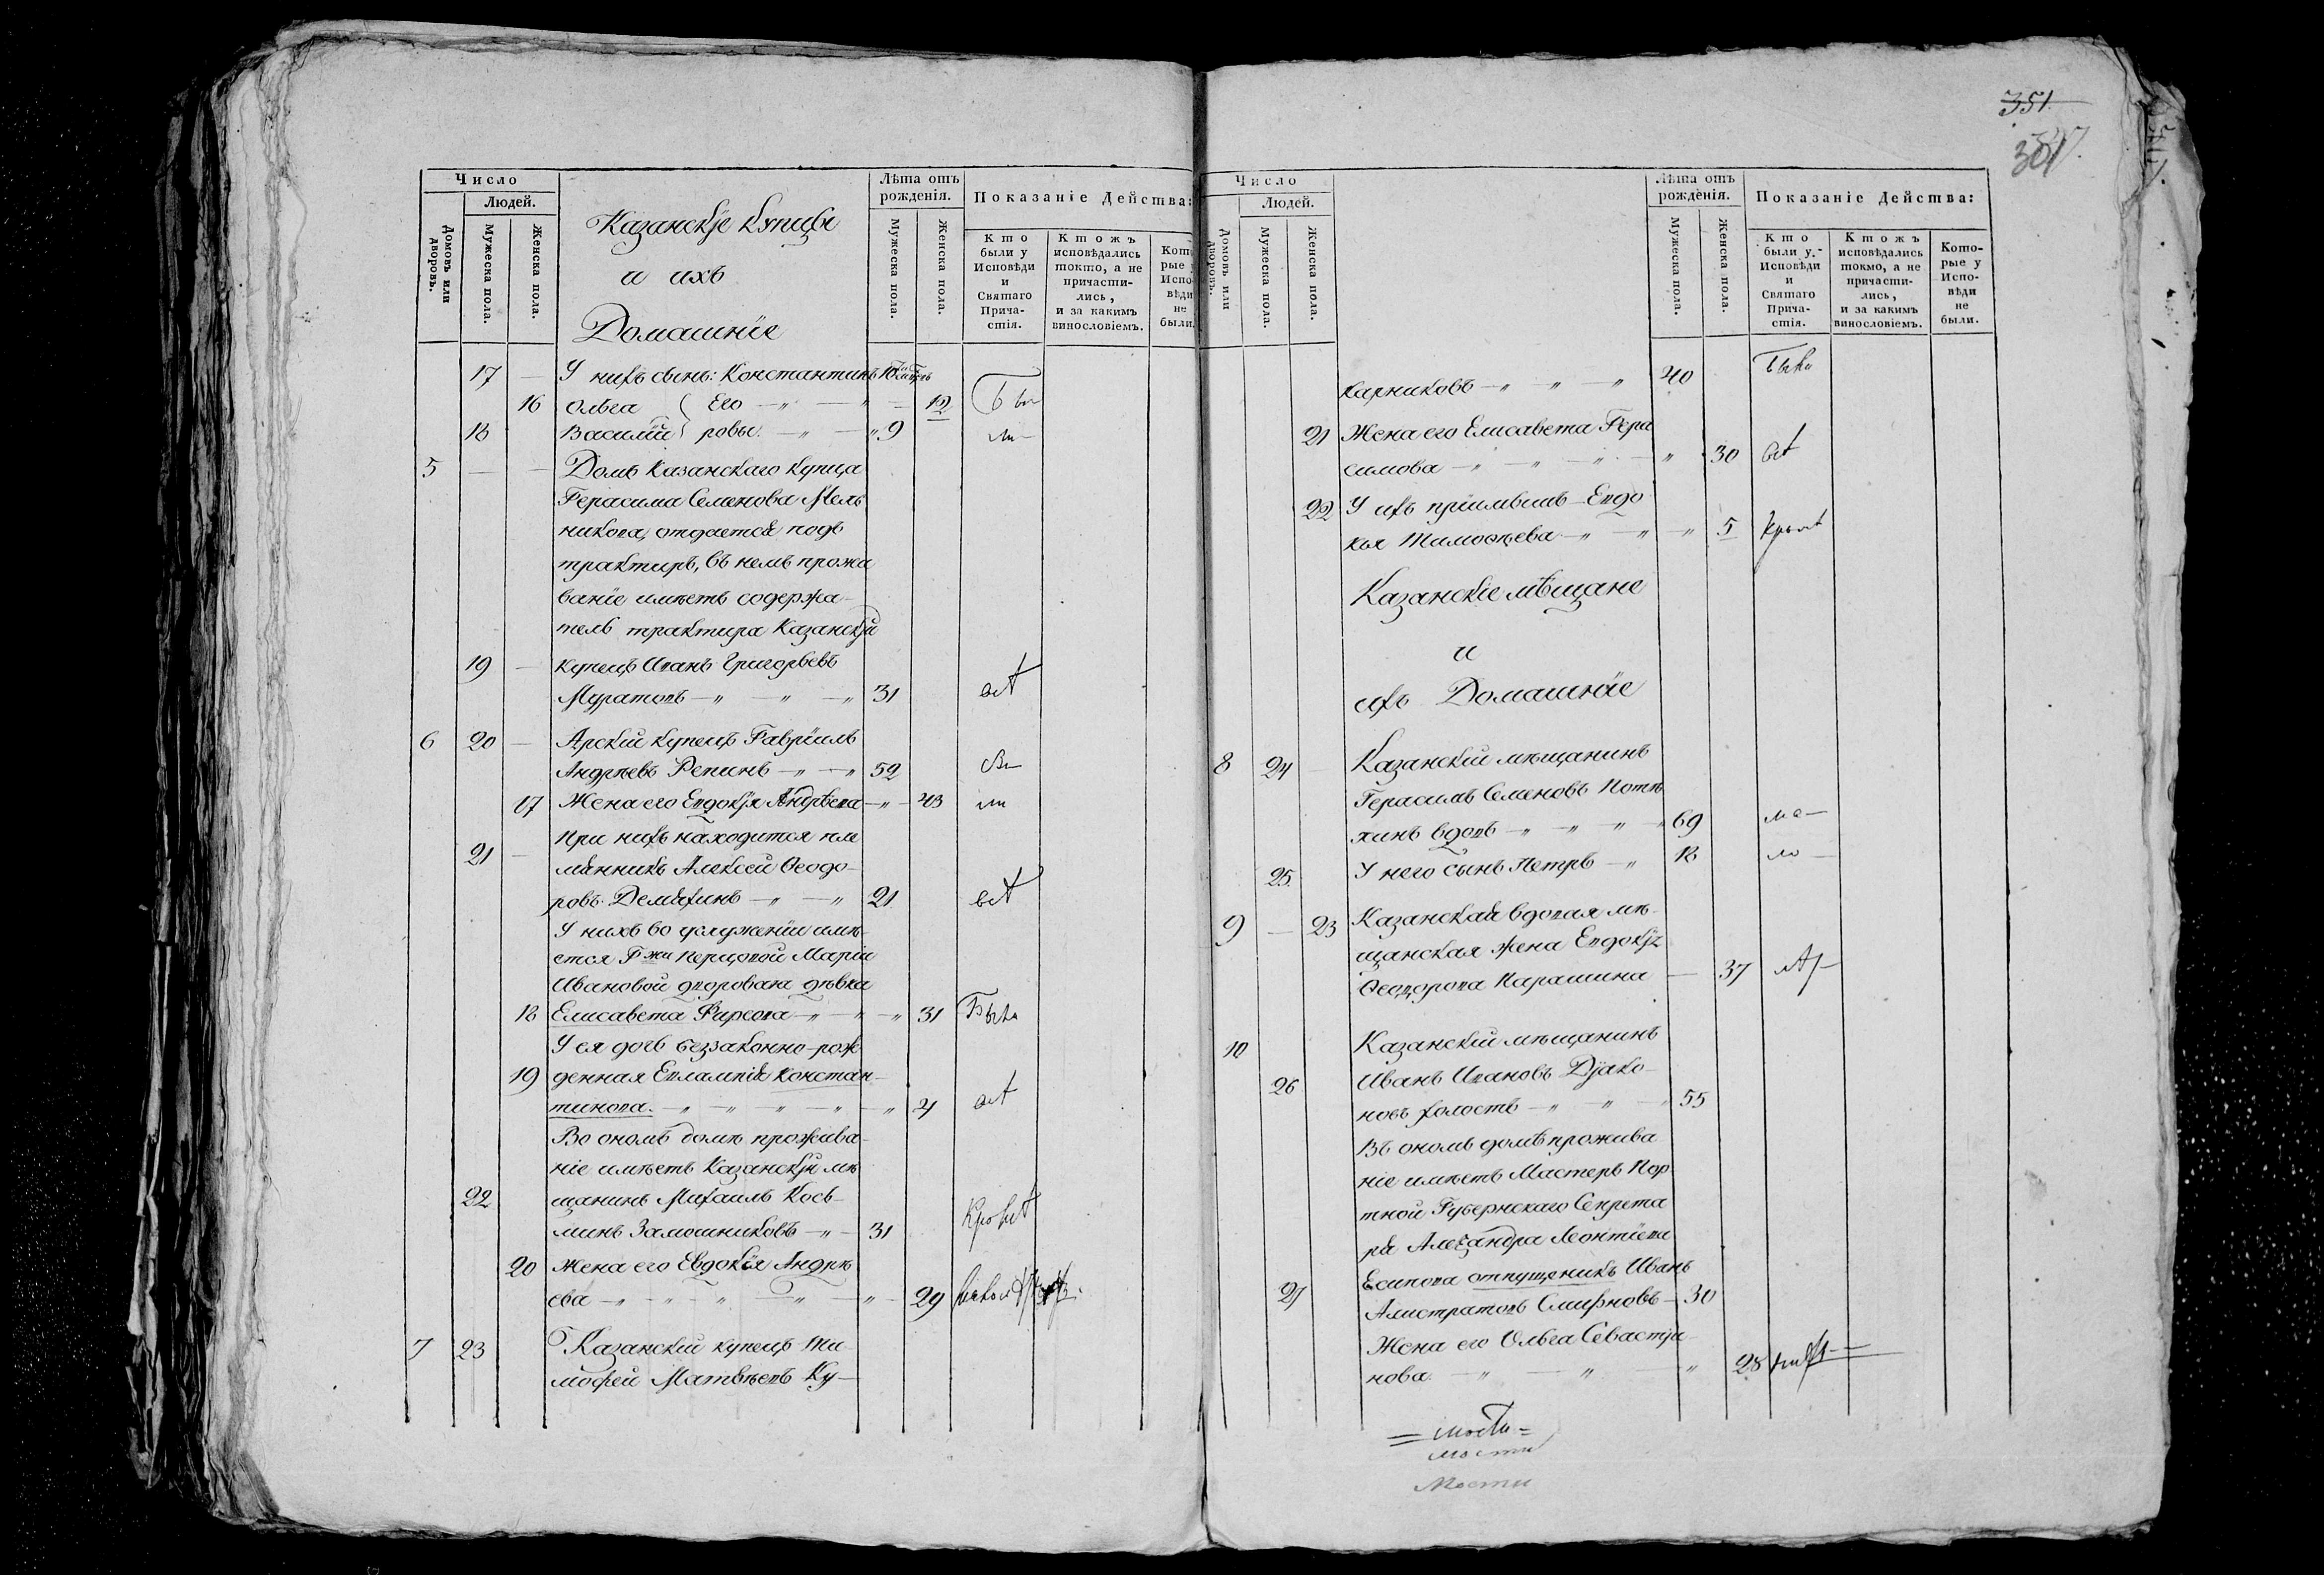 351
Число
Людей.
Домовъ или дворовъ.
Мужеска пола.
Женска пола.
Казанскіе купцы
и ихъ
Домашніе
Лѣта отъ рожденія.
Мужеска пола.
Женска пола.
Показаніе Действа:
Кто были у Исповѣди и Святаго Прича-стія.
Ктожъ исповѣдались токмо, а не причасти-лись, и за какимъ винословіемъ.
Кот рые Испо вѣди не были.
17 — У нихъ сынъ: Константинъ
16 Ольга Его — 12
18 Василій ровы — 9
5 — — Домъ Казанскаго купца
Герасима Семенова Мель
никова, отдается подъ
трактиръ, въ немъ прожи
ваніе имѣетъ содержа-
тель трактира Казанскій
19 — купецъ Иванъ Григорьевъ
Муратовъ — 31
6 20 — Арскій купецъ Гавріилъ
Андрѣевъ Репинъ — 52
17 Жена его Евдокія Андрѣева — 43
При нихъ находится пле
21 — мянникъ Алексей Ѳеодо-
ровъ Демяхинъ — 21
У нихъ во услуженіи имѣ-
ется Гжи Перцовой Маріи
Ивановой дворовая дѣвка
18 Елисавета Фирсова — 31 Была
У ея дочь беззаконно-рож
19 денная Евлампія Констан-
тинова. — 4
Во ономъ домѣ прожива-
ніе имѣетъ Казанскій мѣ
22 щанинъ Михаилъ Козь-
минъ Замошниковъ — 31
20 Жена его Евдокія Андрѣ
ева — 29
7 23 Казанскій купецъ Ти-
мофей Матвѣевъ Ку-
Число
Людей.
Домовъ или дворовъ.
Мужеска пола.
Женска пола.
Лѣта отъ рожденія.
Мужеска пола.
Женска пола.
Показаніе Действа:
Кто были у Исповѣди и Святаго Прича-стія.
Ктожъ исповѣдались токмо, а не причасти-лись, и за какимъ винословіемъ.
Кото-рые у Испо-вѣди не были.
карниковъ — 40
21 Жена его Елисавета Гера
симова — 30
22 У ихъ пріимышъ Евдо
кья Тимоѳѣева — 5
Казанскіе мѣщане
и
ихъ Домашніе
8 24 Казанскій мѣщанинъ
Герасимъ Семеновъ Потѣ
хинъ вдовъ — 69
25 У него сынъ Петръ — 18
9 — 23 Казанская вдовая мѣ-
щанская жена Евдокія
Ѳеодорова Парашина — 37
10 Казанскій мѣщанинъ
26 Иванъ Ивановъ Дьяко-
новъ холостъ — 55
Въ ономъ домѣ прожива
ніе имѣетъ Мастеръ Пор
тной Губернскаго Секрета
ря Александра Леонтіева
27 Есипова отпущеникъ Иванъ
Алистратовъ Смирновъ — 30
Жена его Ольга Севастія
нова. — 28
= мости =
мости
Мости